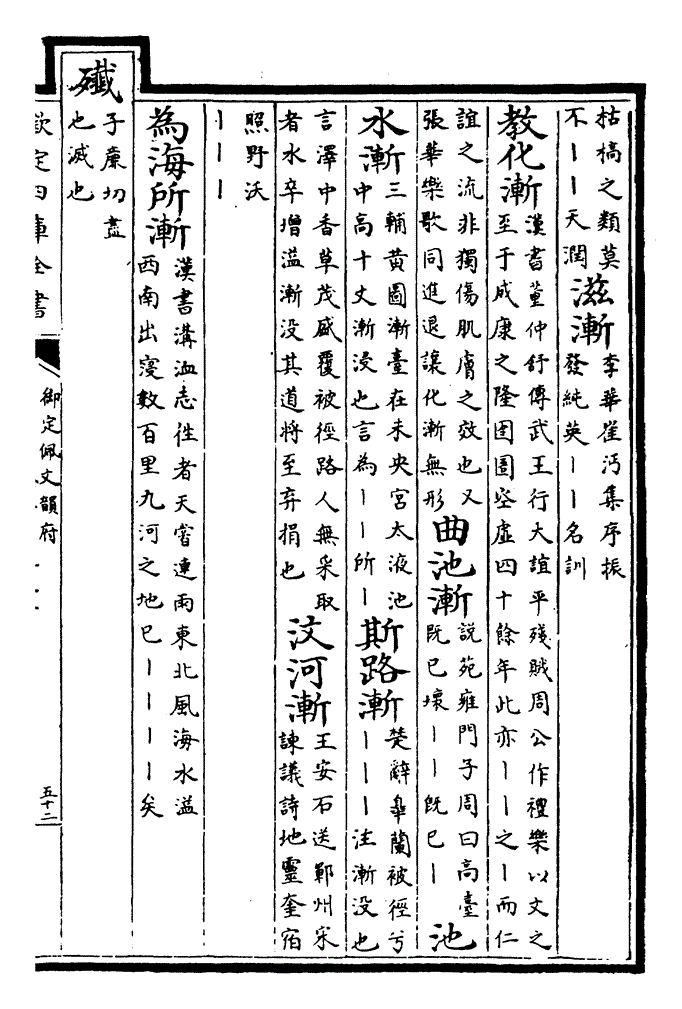 枯槁之類莫
不丨丨天潤
滋漸
李華崔沔集序振
發純英丨丨名訓
教化漸
漢書董仲舒傳武王行大誼平殘賊周公作禮樂以文之
至于成康之隆囹圄空虛四十餘年此亦丨丨之丨而仁
誼之流非獨傷肌膚之效也又
張華樂歌同進退讓化漸無形
曲池漸
説苑雍門子周曰高臺
既已壞丨丨既已丨
池
水漸
三輔黄圖漸臺在未央宮太液池
中高十丈漸浸也言為丨丨所丨
斯路漸
楚辭皋蘭被徑兮
丨丨丨注漸没也
言澤中香草茂盛覆被徑路人無采取
者水卒增溢漸没其道將至弃捐也
汶河漸
王安石送鄆州宋
諫議詩地靈奎宿
照野沃
丨丨丨
為海所漸
漢書溝洫志徃者天嘗連雨東北風海水溢
西南出寖數百里九河之地已丨丨丨丨矣
殲
子亷切盡
也滅也
欽定四庫全書
御定佩文韻府
五十二